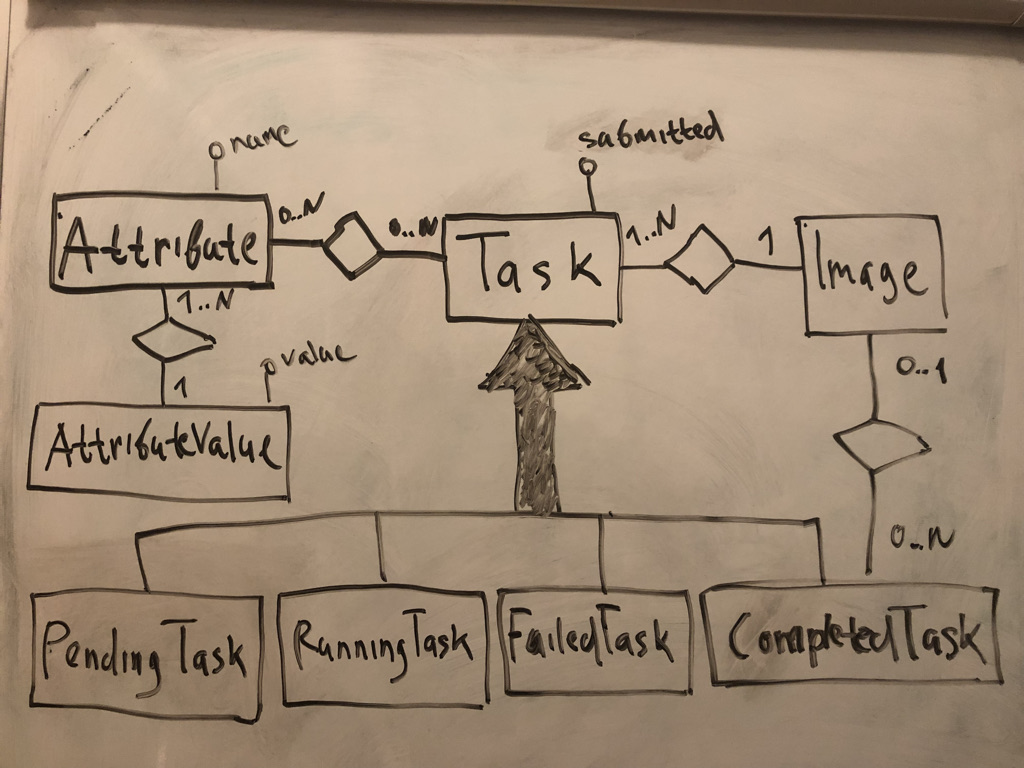 name
submitted
Attribute
0..N
0..N
Task
1..N
1
Image
1..N
1
value
AttributeValue
0..1
0..N
PendingTask
RunningTask
FailedTask
CompletedTask